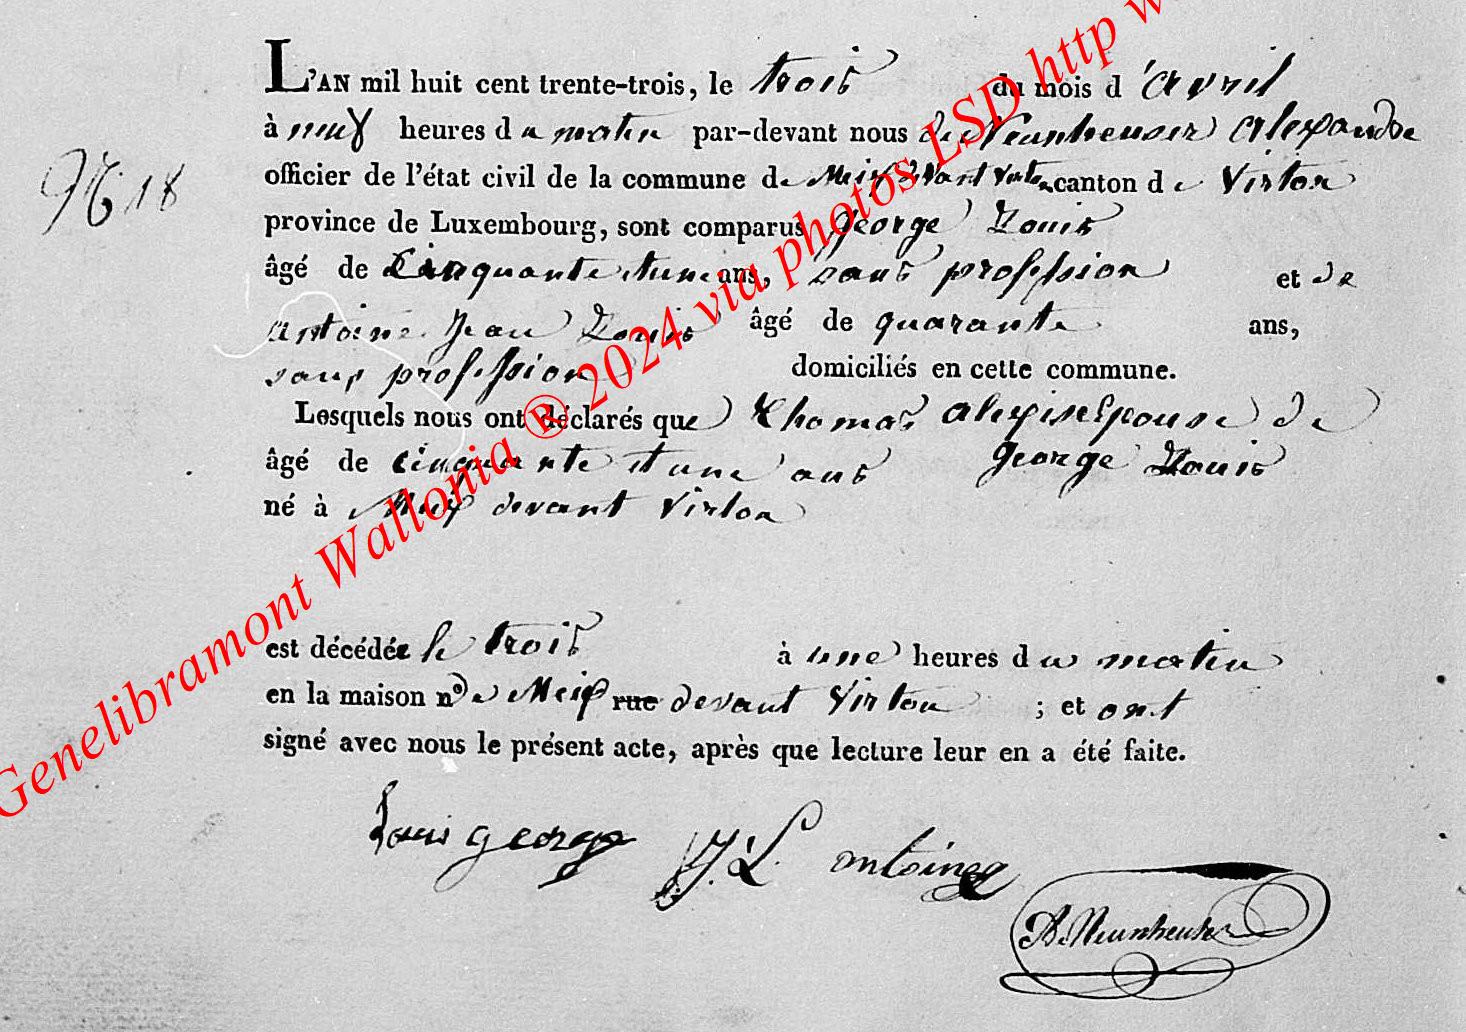 L'AN mil huit cent trente-trois, le trois du mois d'avril
à neuf heures du matin par-devant nous de Neunheuser Alexandre
officier de l'état civil de la commune de Meix devant Virton canton de Virton
N° 18
province de Luxembourg, sont comparus George Louis
âgé de Cinquante et une ans, sans profession et de
Antoine Jean Louis âgé de quarante ans,
sans profession domiciliés en cette commune.
Lesquels nous ont déclarés que Thomas Alexise Epouse de
âgé de cinquante et une ans George Louis
né à Meix devant Virton
est décédée le trois à une heures du matin
en la maison n° de Meix rue devant Virton ; et ont
signé avec nous le présent acte, après que lecture leur en a été faite.
Louis george J. L. antoine
A. Neunheuser
Genelibramont Wallonia ® 2024 via photos LSD http w